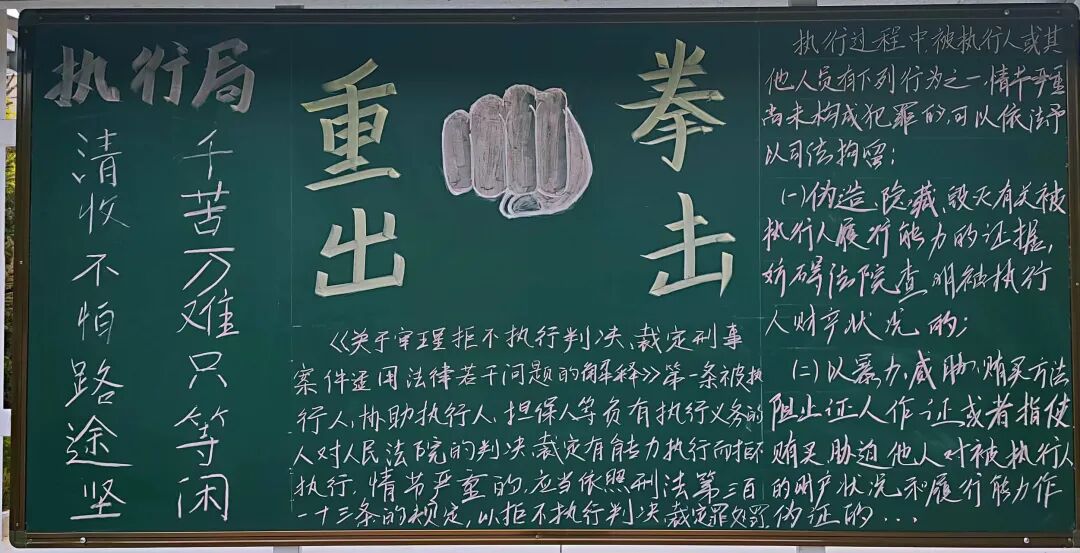 执行局
清收不怕路途坚
千苦万难只等闲
重拳
出击
《关于审理拒不执行判决、裁定刑事
案件适用法律若干问题的解释》第一条被执
行人、协助执行人、担保人等负有执行义务的
人对人民法院的判决、裁定有能力执行而拒不
执行,情节严重的,应当依照刑法第三百
一十三条的规定,以拒不执行判决、裁定罪处罚
执行过程中,被执行人或其
他人员有下列行为之一情节严重
尚未构成犯罪的,可以依法予
以司法拘留:
(一)伪造、隐藏、毁灭有关被
执行人履行能力的证据,
妨碍法院查明被执行
人财产状况的;
(二)以暴力、威胁、贿买方法
阻止证人作证或者指使
贿买胁迫他人对被执行人
的财产状况和履行能力作
伪证的...